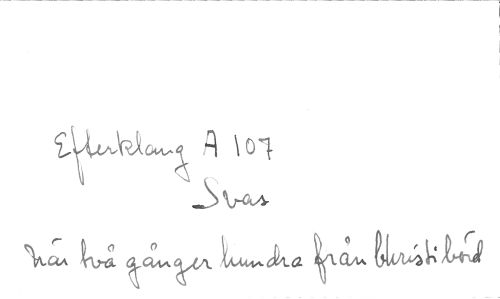 Efterklang A 107
Svas
När två gånger hundra från Christi börd